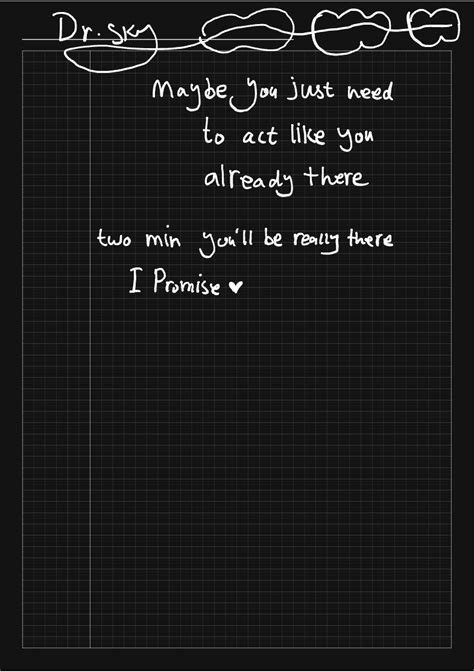 Dr. sky
Maybe you just need
to act like you
already there
two min you'll be really there
I Promise ♥